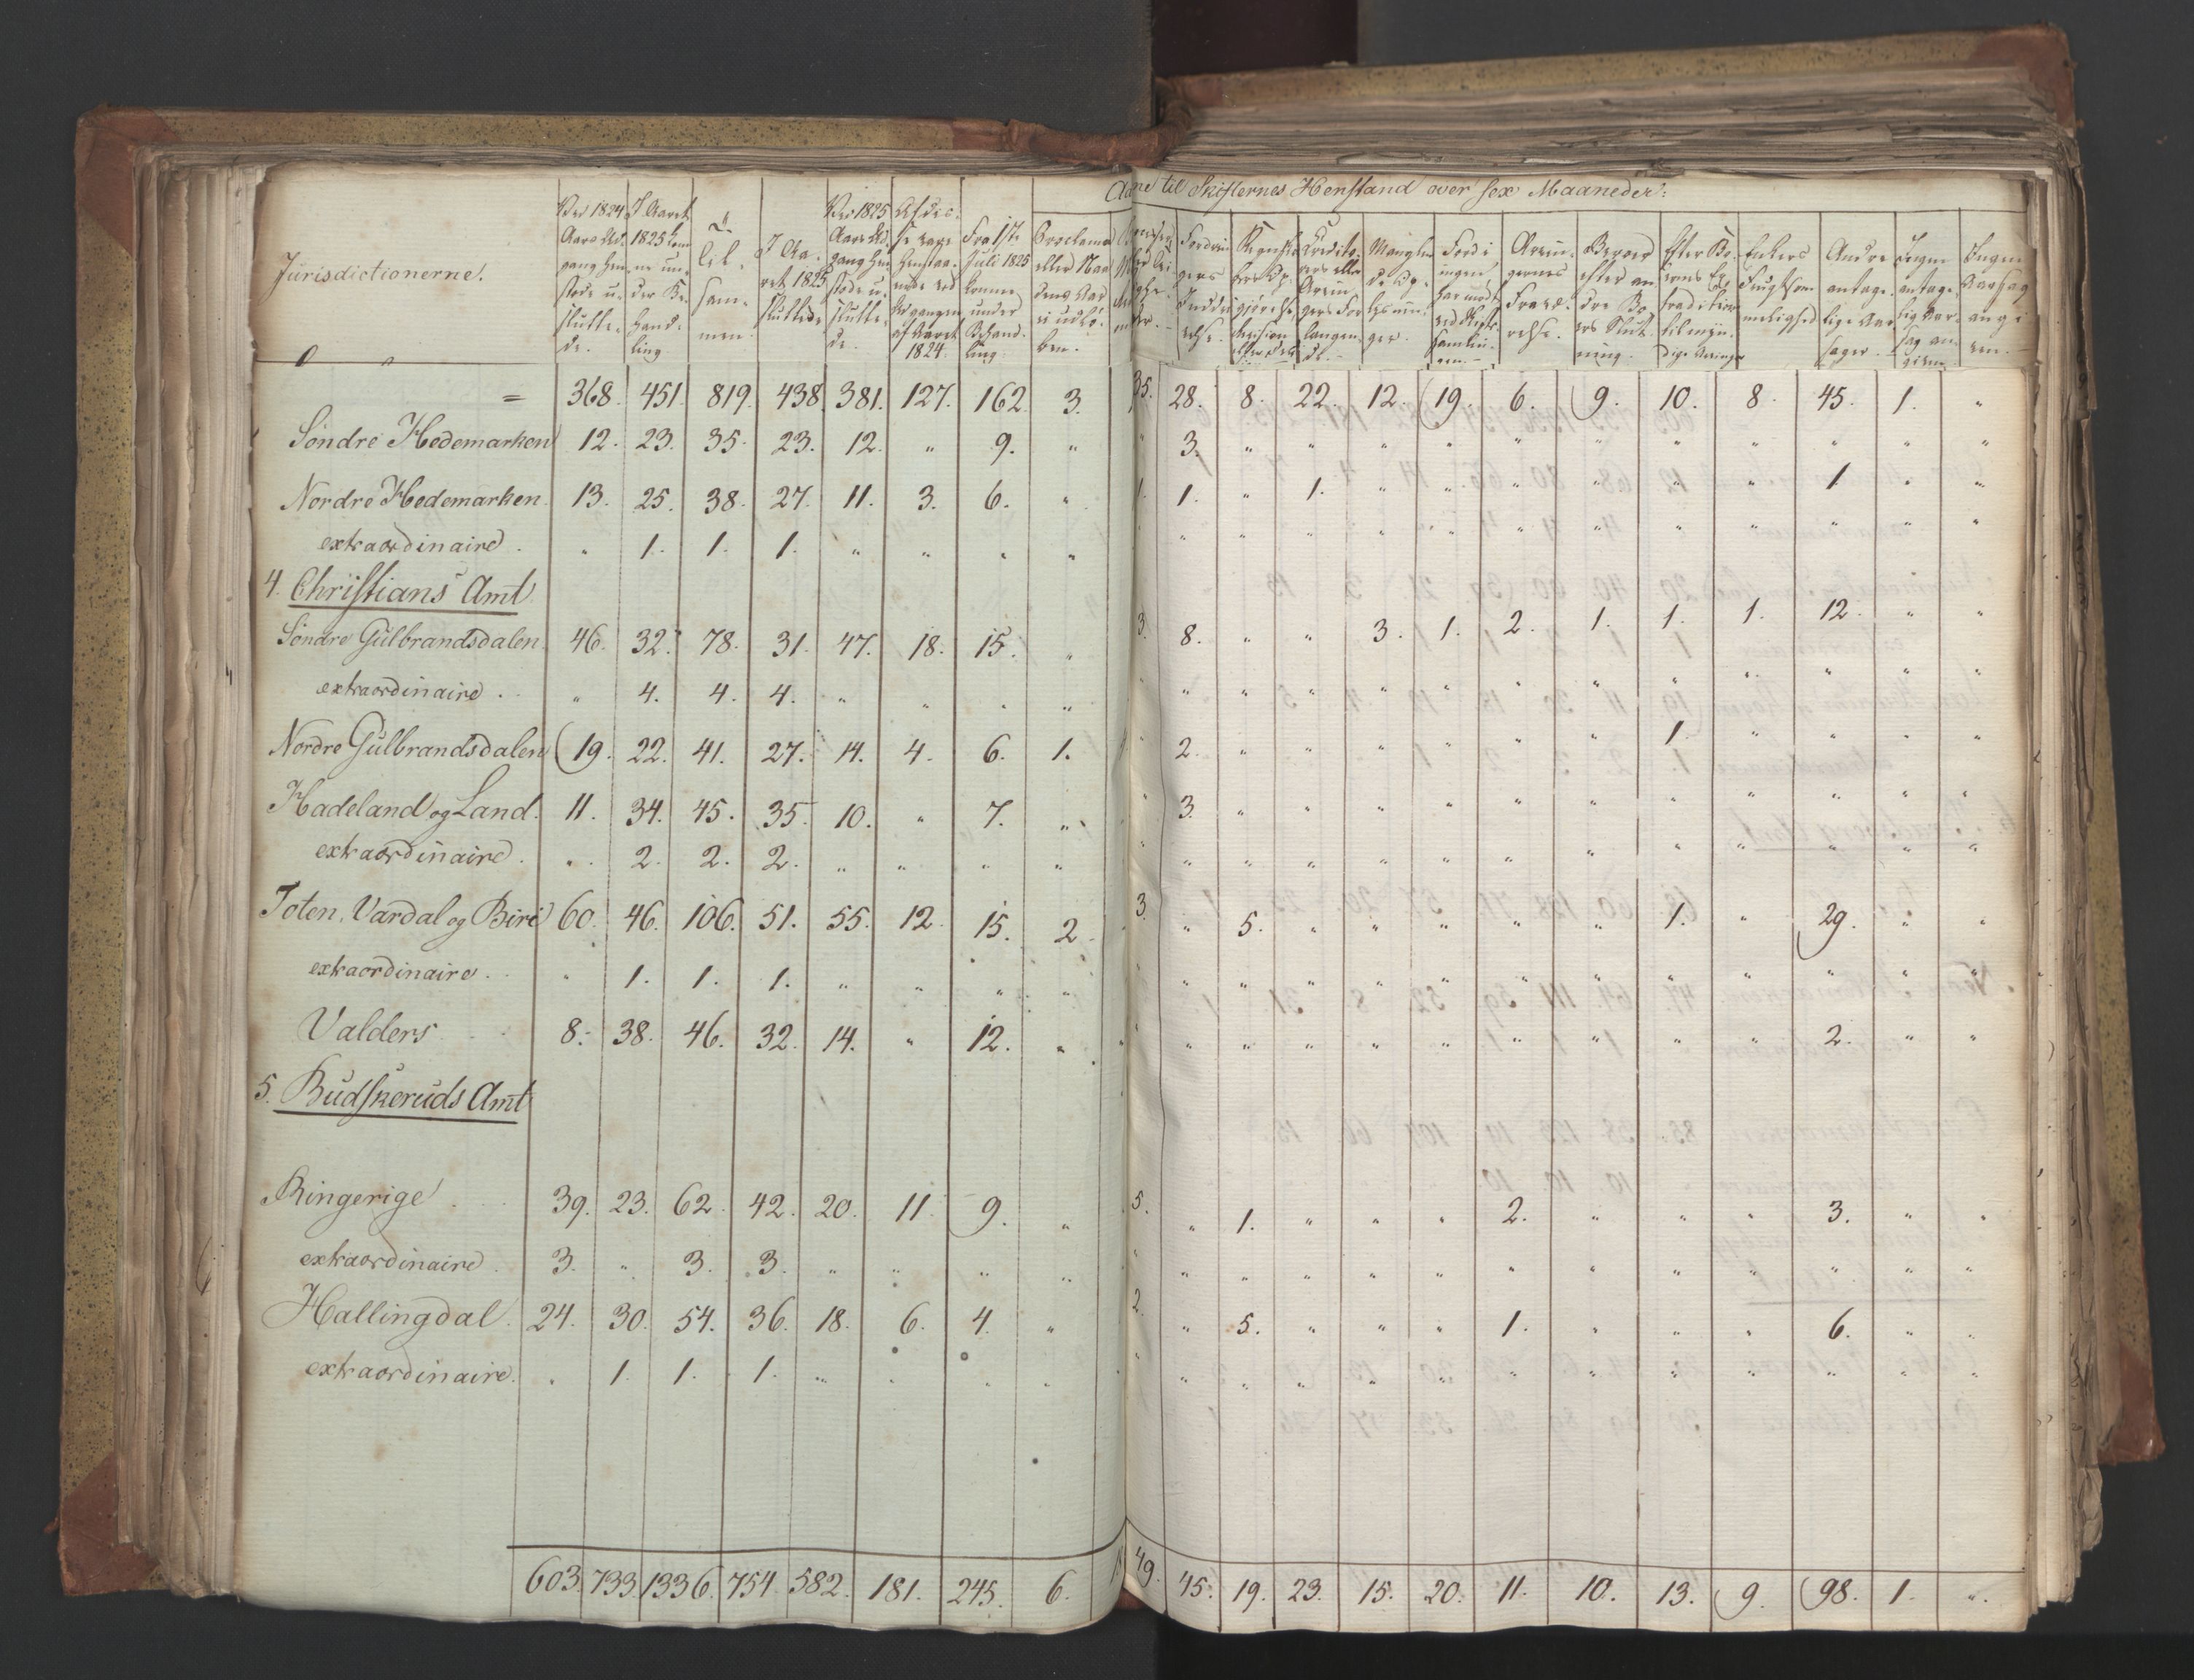 Aa ne til Skifternes Henstand over sex Maaneder:
Jurisdictionerne.
Ved 1824 Aars Ud- gang hen- stode u- slutte- de.
I Aaret 1825 kom- ne un- der Be- hand- ling
Til- sam- men.
I Aa- ret 1825 sluttede
Ved 1825 Aars Ud- gang hen- stode u- slutte- de
Af dis- se vare henstaa- ende ved Udgangen af Aaret 1824.
Fra 1ste Juli 1825 komne under Behand- ling
Proclama eller
Fordrin- gers Inddri- velse.
Mangler
Arvin- gernes Fravæ- relse.
Beroer efter an- dre Bo- ers Slut- ning.
Enkers Frugtsom- melighed
Andre antage- lige Aar- sager.
Ingen antage- lig Aar- sag an- given
Ingen Aarsag angi- ven.
= 368. 451. 819. 438. 381. 127. 162. 3. 35. 28. 8. 22. 12. 19. 6. 9. 10. 8. 45. 1. "
Söndre Hedemarken 12. 23. 35. 23. 12. " 9. " " 3. " " " " " " " " " " "
Nordre Hedemarken. 13. 25. 38. 27. 11. 3. 6. " 1. 1. " 1. " " " " " " 1 " "
extraordinaire. " 1. 1. 1. " " " " " " " " " " " " " " " "
4. Christians Amt.
Söndre Gülbrandsdalen. 46. 32. 78. 31. 47. 18. 15. " 3. 8. " " 3. 1. 2. 1. 1. 1. 12. " "
extraordinaire. " 4. 4. 4. " " " " " " " " " " " " " " " " "
Nordre Gülbrandsdalen 19. 22. 41. 27. 14. 4. 6. 1. " 2. " " " " " " 1. " " " "
Hadeland og Land. 11. 34. 45. 35. 10. " 7. " " 3. " " " " " " " " " " "
extraordinaire. " 2. 2. 2. " " " " " " " " " " " " " " " " "
Toten, Vardal og Biri 60. 46. 106. 51. 55. 12. 15. 2. 3. " 5. " " " " " 1. " 29. " "
extraordinaire. " 1. 1. 1. " " " " " " " " " " " " " " " " "
Valders 8. 38. 46. 32. 14. " 12. " " " " " " " " " " " 2. " "
5. Budskeruds Amt
Ringerige 39. 23. 62. 42. 20. 11. 9. " 5. " 1. " " " 2. " " " 3. " "
extraordinaire. 3. " 3. 3. " " " " " " " " " " " " " " " " "
Hallingdal. 24. 30. 54. 36. 18. 6. 4. " 2. " 5. " " " 1. " " " 6. " "
extraordinaire. " 1. 1. 1. " " " " " " " " " " " " " " " " "
603. 733. 1336. 754. 582. 181. 245. 6. 49. 45. 19. 23. 15. 20. 11. 10. 13. 9. 98. 1. "